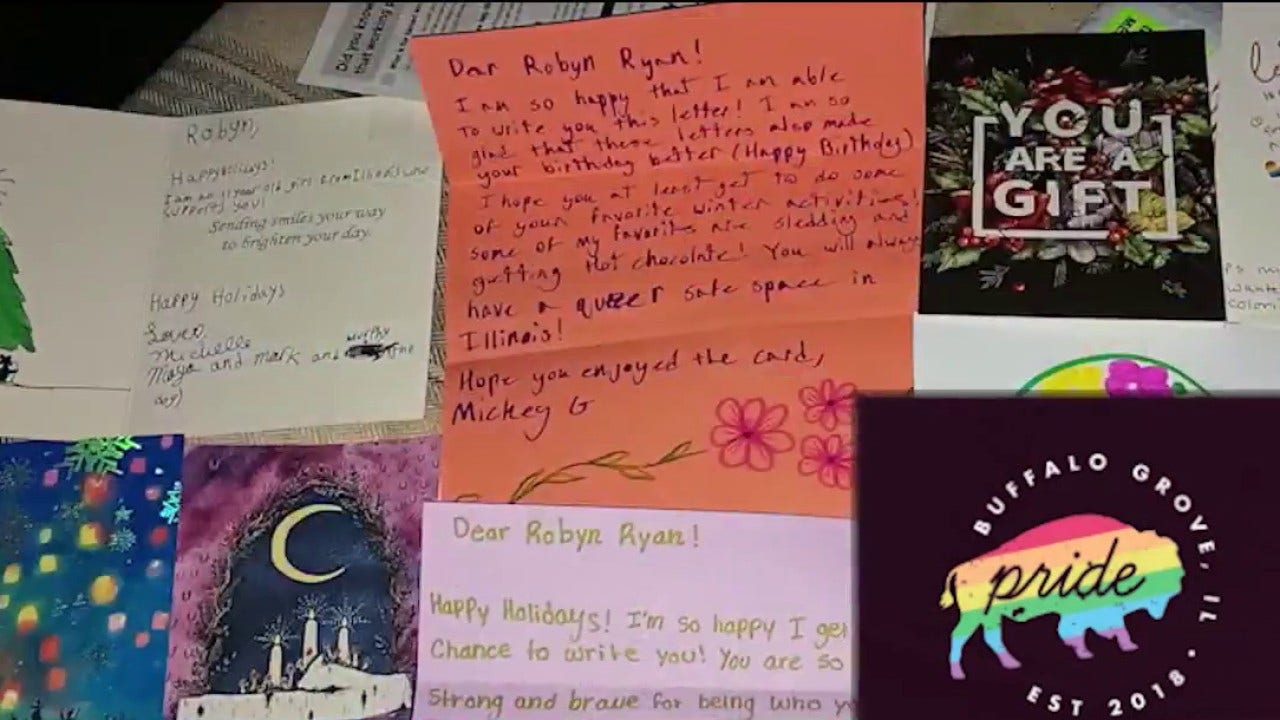 Did you know
that working p
Robyn,
Happy Holidays!
I am an 11 year old girl from Illinois who
supports you!
Sending smiles your way
to brighten your day.
Happy Holidays
Love,
Michelle
Maya and Mark and Murphy
Dear Robyn Ryan!
I am so happy that I am able
to write you this letter! I am so
glad that these letters also made
your birthday better (Happy Birthday)
I hope you at least get to do some
of your favorite winter activities!
some of my favorites are sledding and
getting Hot chocolate! You will always
have a queer safe space in
Illinois!
Hope you enjoyed the card,
Mickey G
YOU
ARE A
GIFT
Dear Robyn Ryan!
Happy Holidays! I'm so happy I get
Chance to write you! You are so
Strong and brave for being who y
BUFFALO GROVE, IL
pride
EST 2018